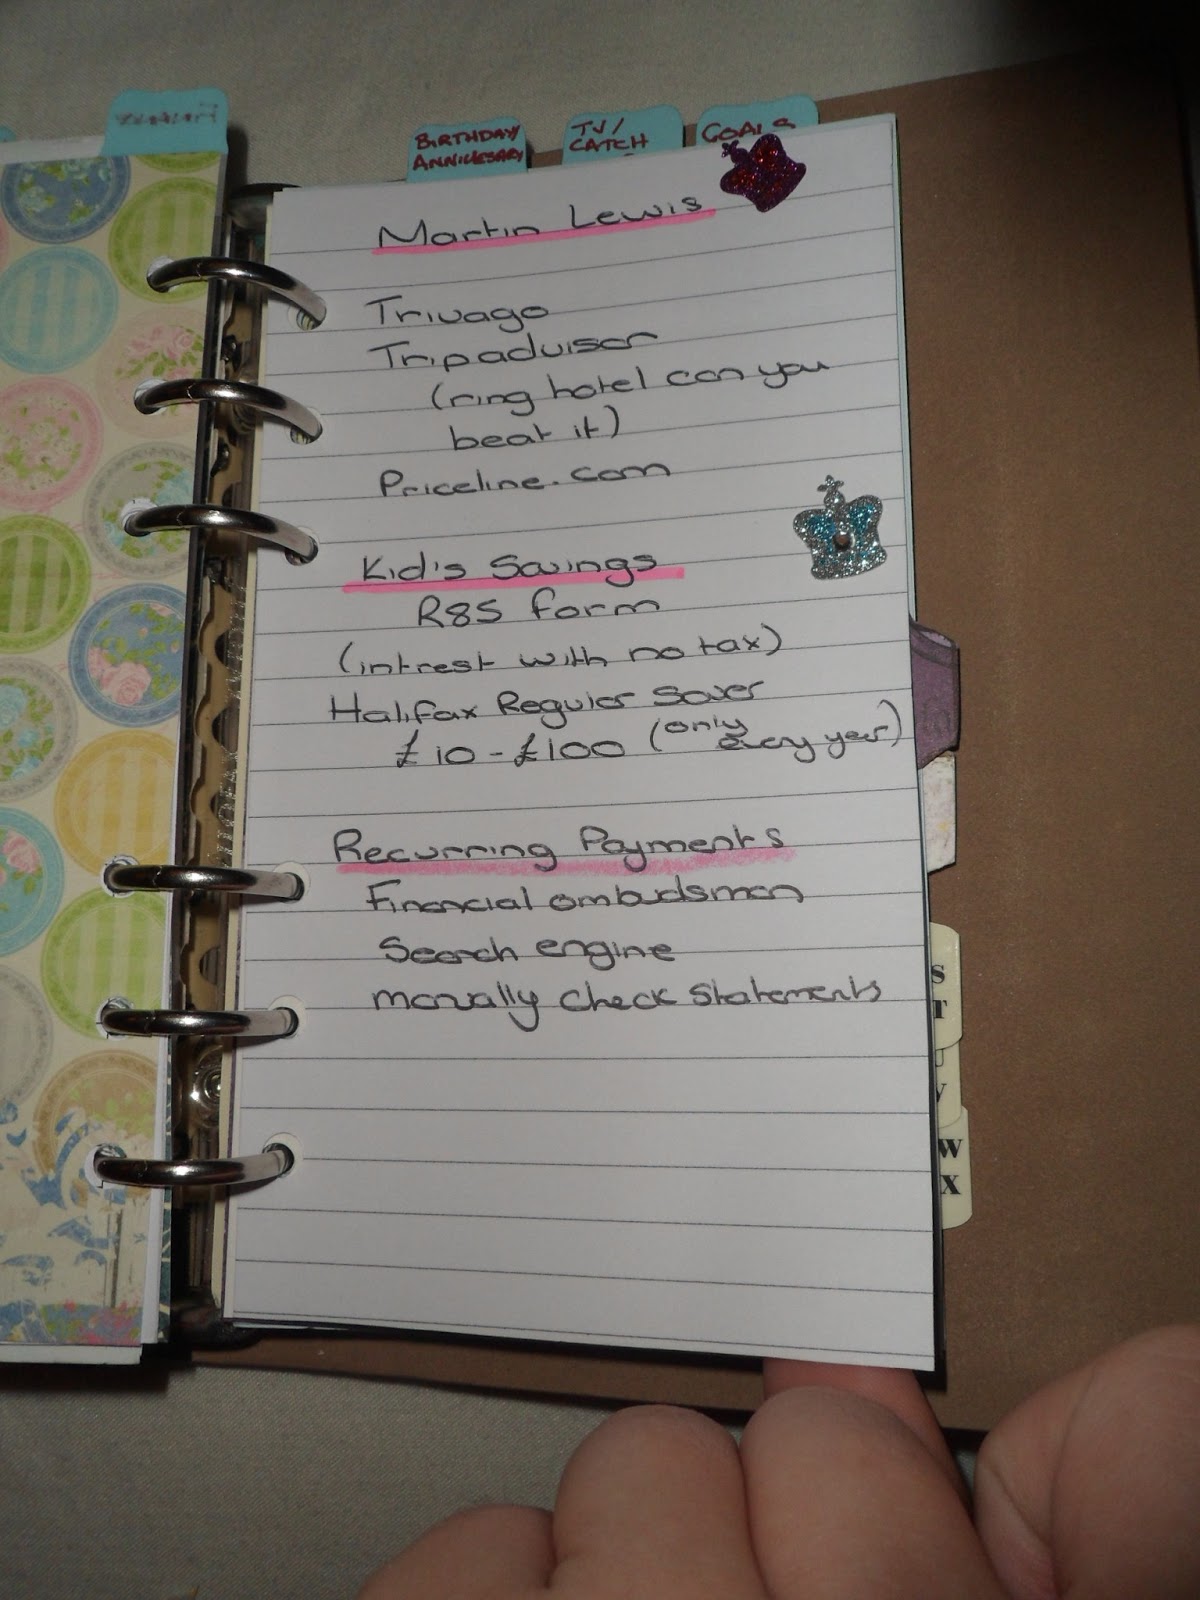 FINANCE
BIRTHDAY/
ANNIVESARY
TV/
CATCH
GOALS
Martin Lewis
Trivago
Tripadvisor
(ring hotel can you
beat it)
Priceline.com
Kid's Savings
R85 form
(intrest with no tax)
Halifax Regular Saver
£10 - £100 (only
every year)
Recurring Payments
Financial ombudsman
Search engine
manually check statements
S
T
U
V
W
X